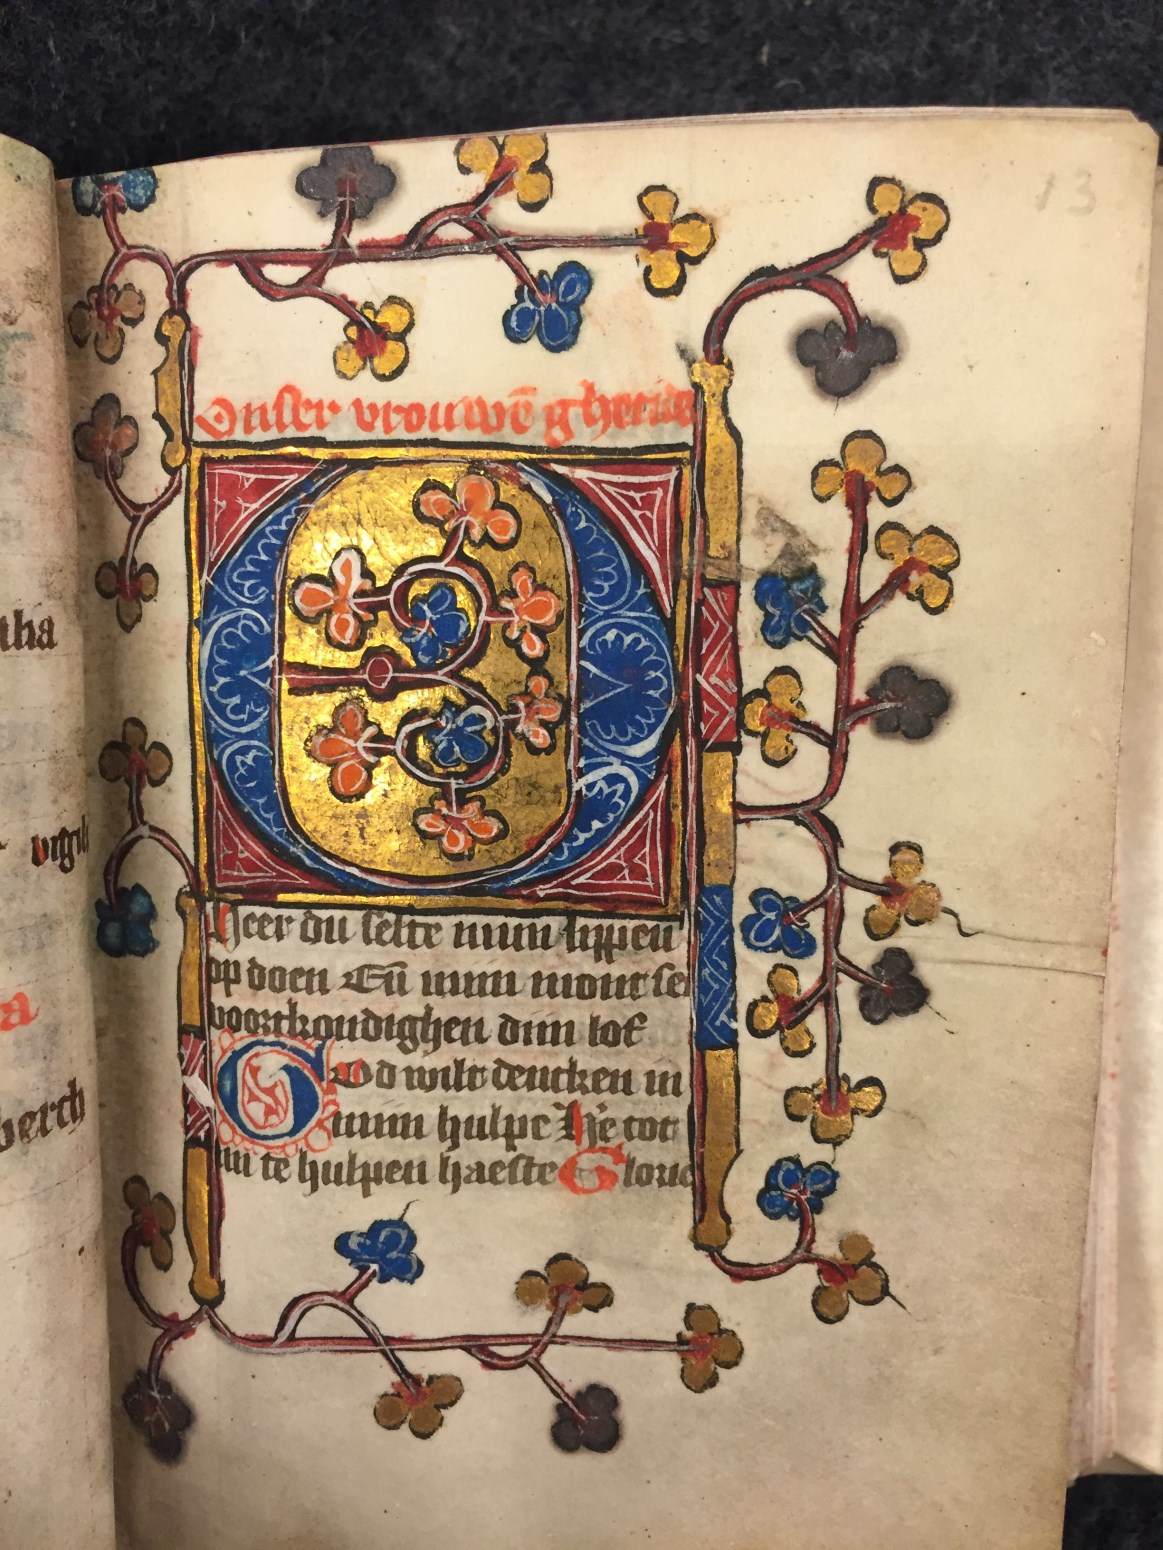 13
Onser vrouwē ghetide
Heer du selte mijn lippen
op doen Eñ mijn mont sel
voortkondighen dijn lof
God wilt dencken in
mijn hulpe He᷑e tot
mi te hulpen haeste Glorie
tha
vigili
a
berch